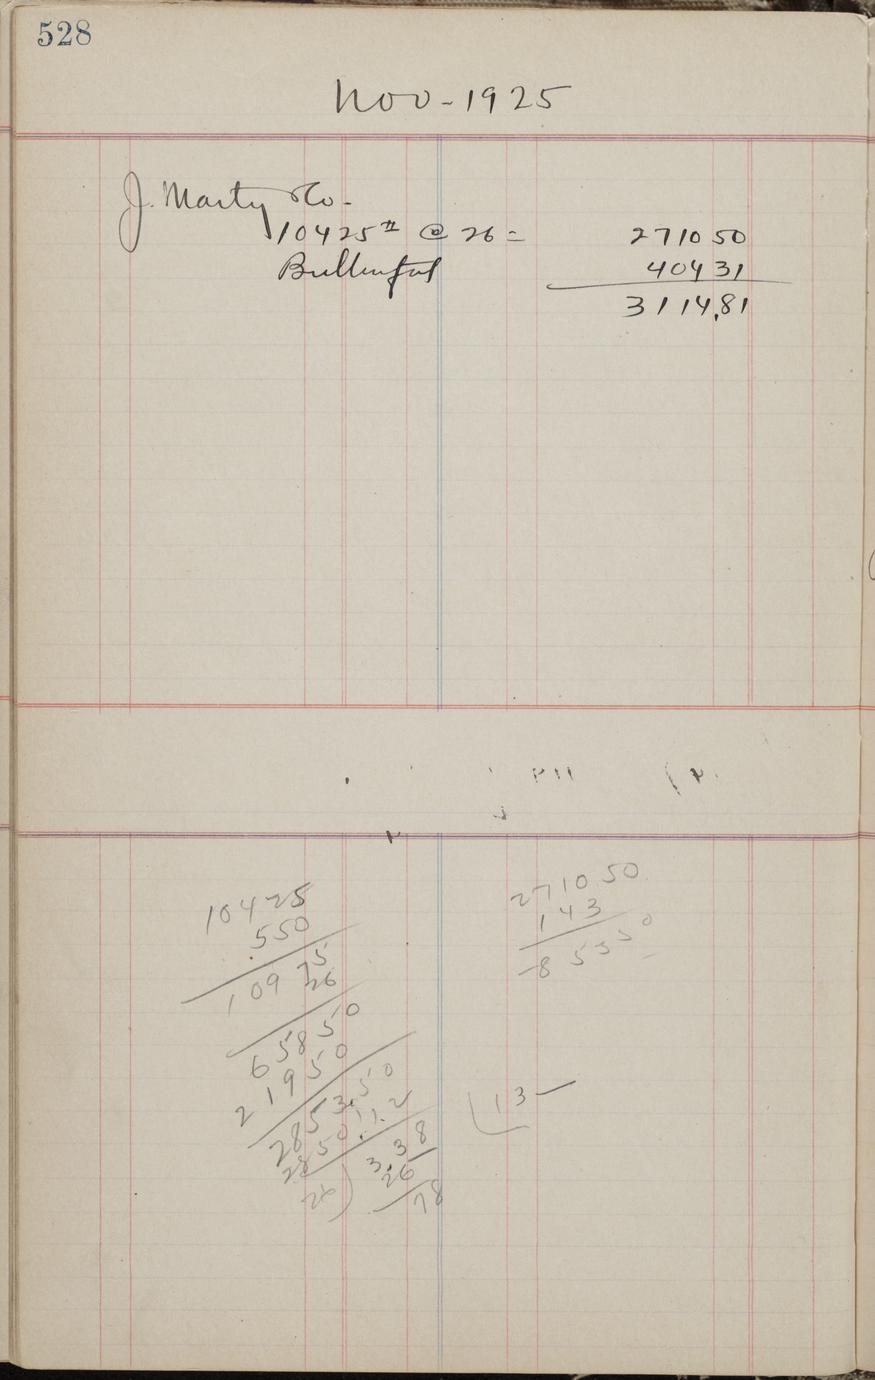 528
Nov-1925
J. Marty & Co-
10425# @ 26= 2710 50
Butterfat 404 31
3114.81
10425
550
10975
26
65850
21950
2853.50
2850.12
26) 3.38
26
78
13-
2710 50
143
8 5 5 5 0